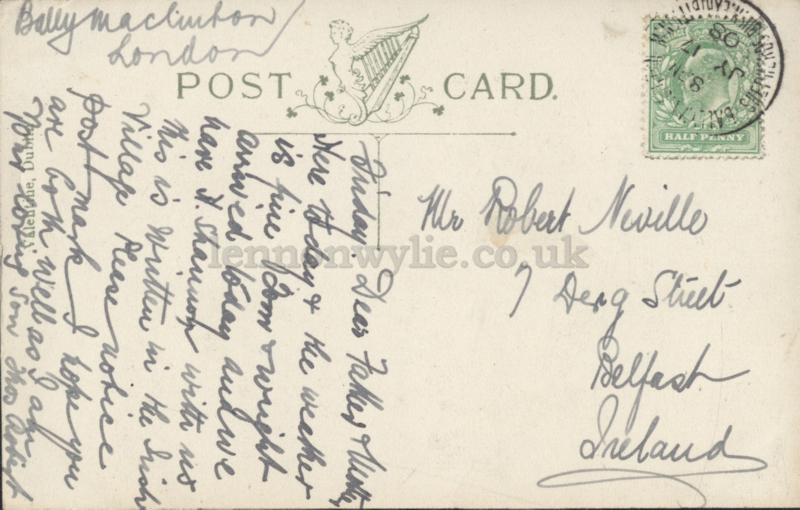 Bally Maclinton
London
POST CARD.
HALF PENNY
Friday. Dear Father & Mother
Here today & the weather
is fine Tom & Wright
arrived today and we
have H. Shannon with us
This is written in the Irish
Village Please notice
post mark I hope you
are both well as I am
Your loving Son Thos Robert
Mr Robert Neville
7 Derg Street
Belfast
Ireland
Valentine, Dublin
lennonwylie.co.uk
JY 17
08